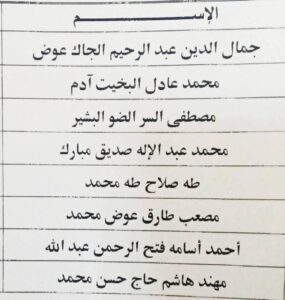 الإســـــم
جمال الدين عبد الرحيم الجاك عوض
محمد عادل البخيت آدم
مصطفى السر الضو البشير
محمد عبد الإله صديق مبارك
طه صلاح طه محمد
مصعب طارق عوض محمد
أحمد أسامه فتح الرحمن عبد الله
مهند هاشم حاج حسن محمد